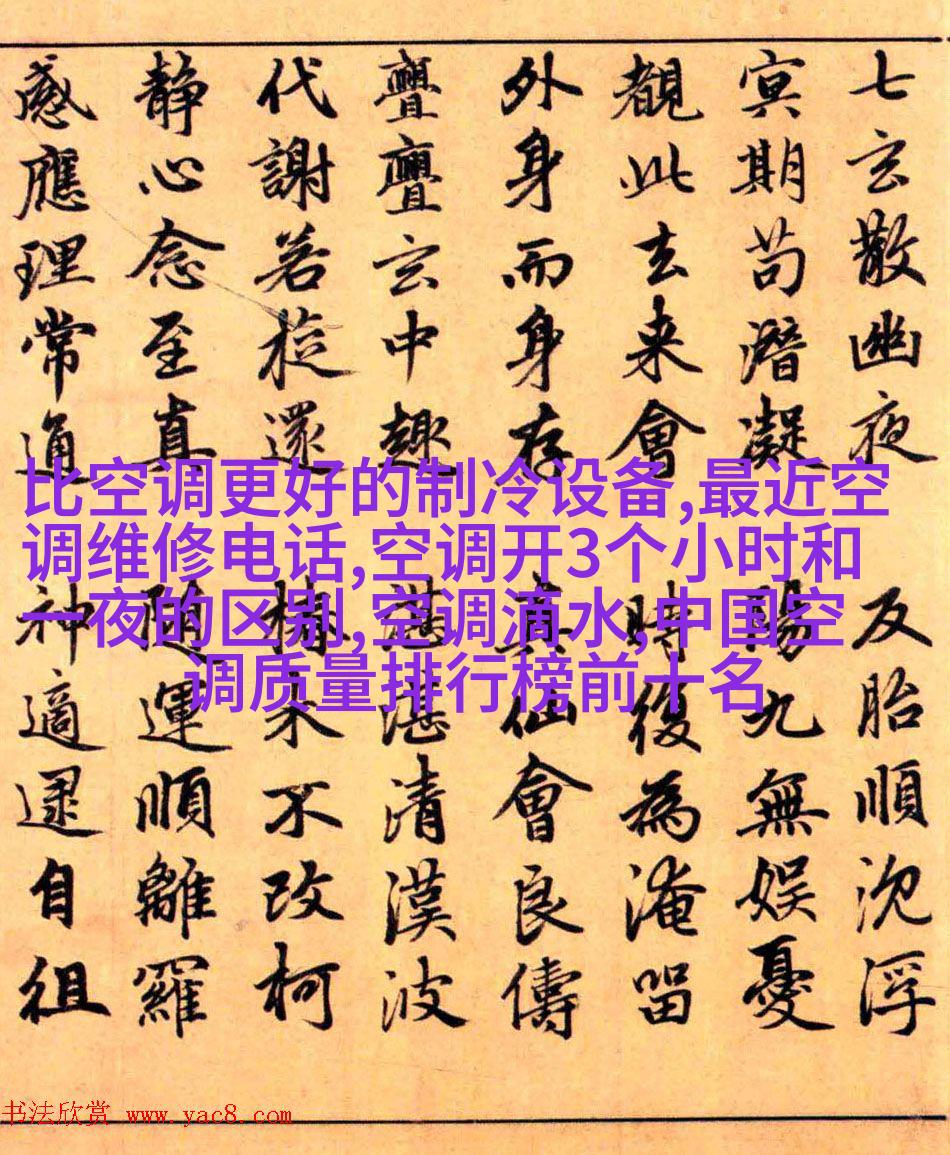 七玄散幽夜 反胎順沈浮
冥期苟潛凝 陽九無娱憂
覩此去来會 時復為淹留
外身而身存 真仙會良儔
亹亹玄中趣 湛湛清漢波
代謝若旋還 椿木不改柯
静心念至真 隨運順離羅
感應理常通 神適逮自徂
比空调更好的制冷设备,最近空
调维修电话,空调开3个小时和
一夜的区别,空调滴水,中国空
调质量排行榜前十名
书法欣赏 www.yac8.com